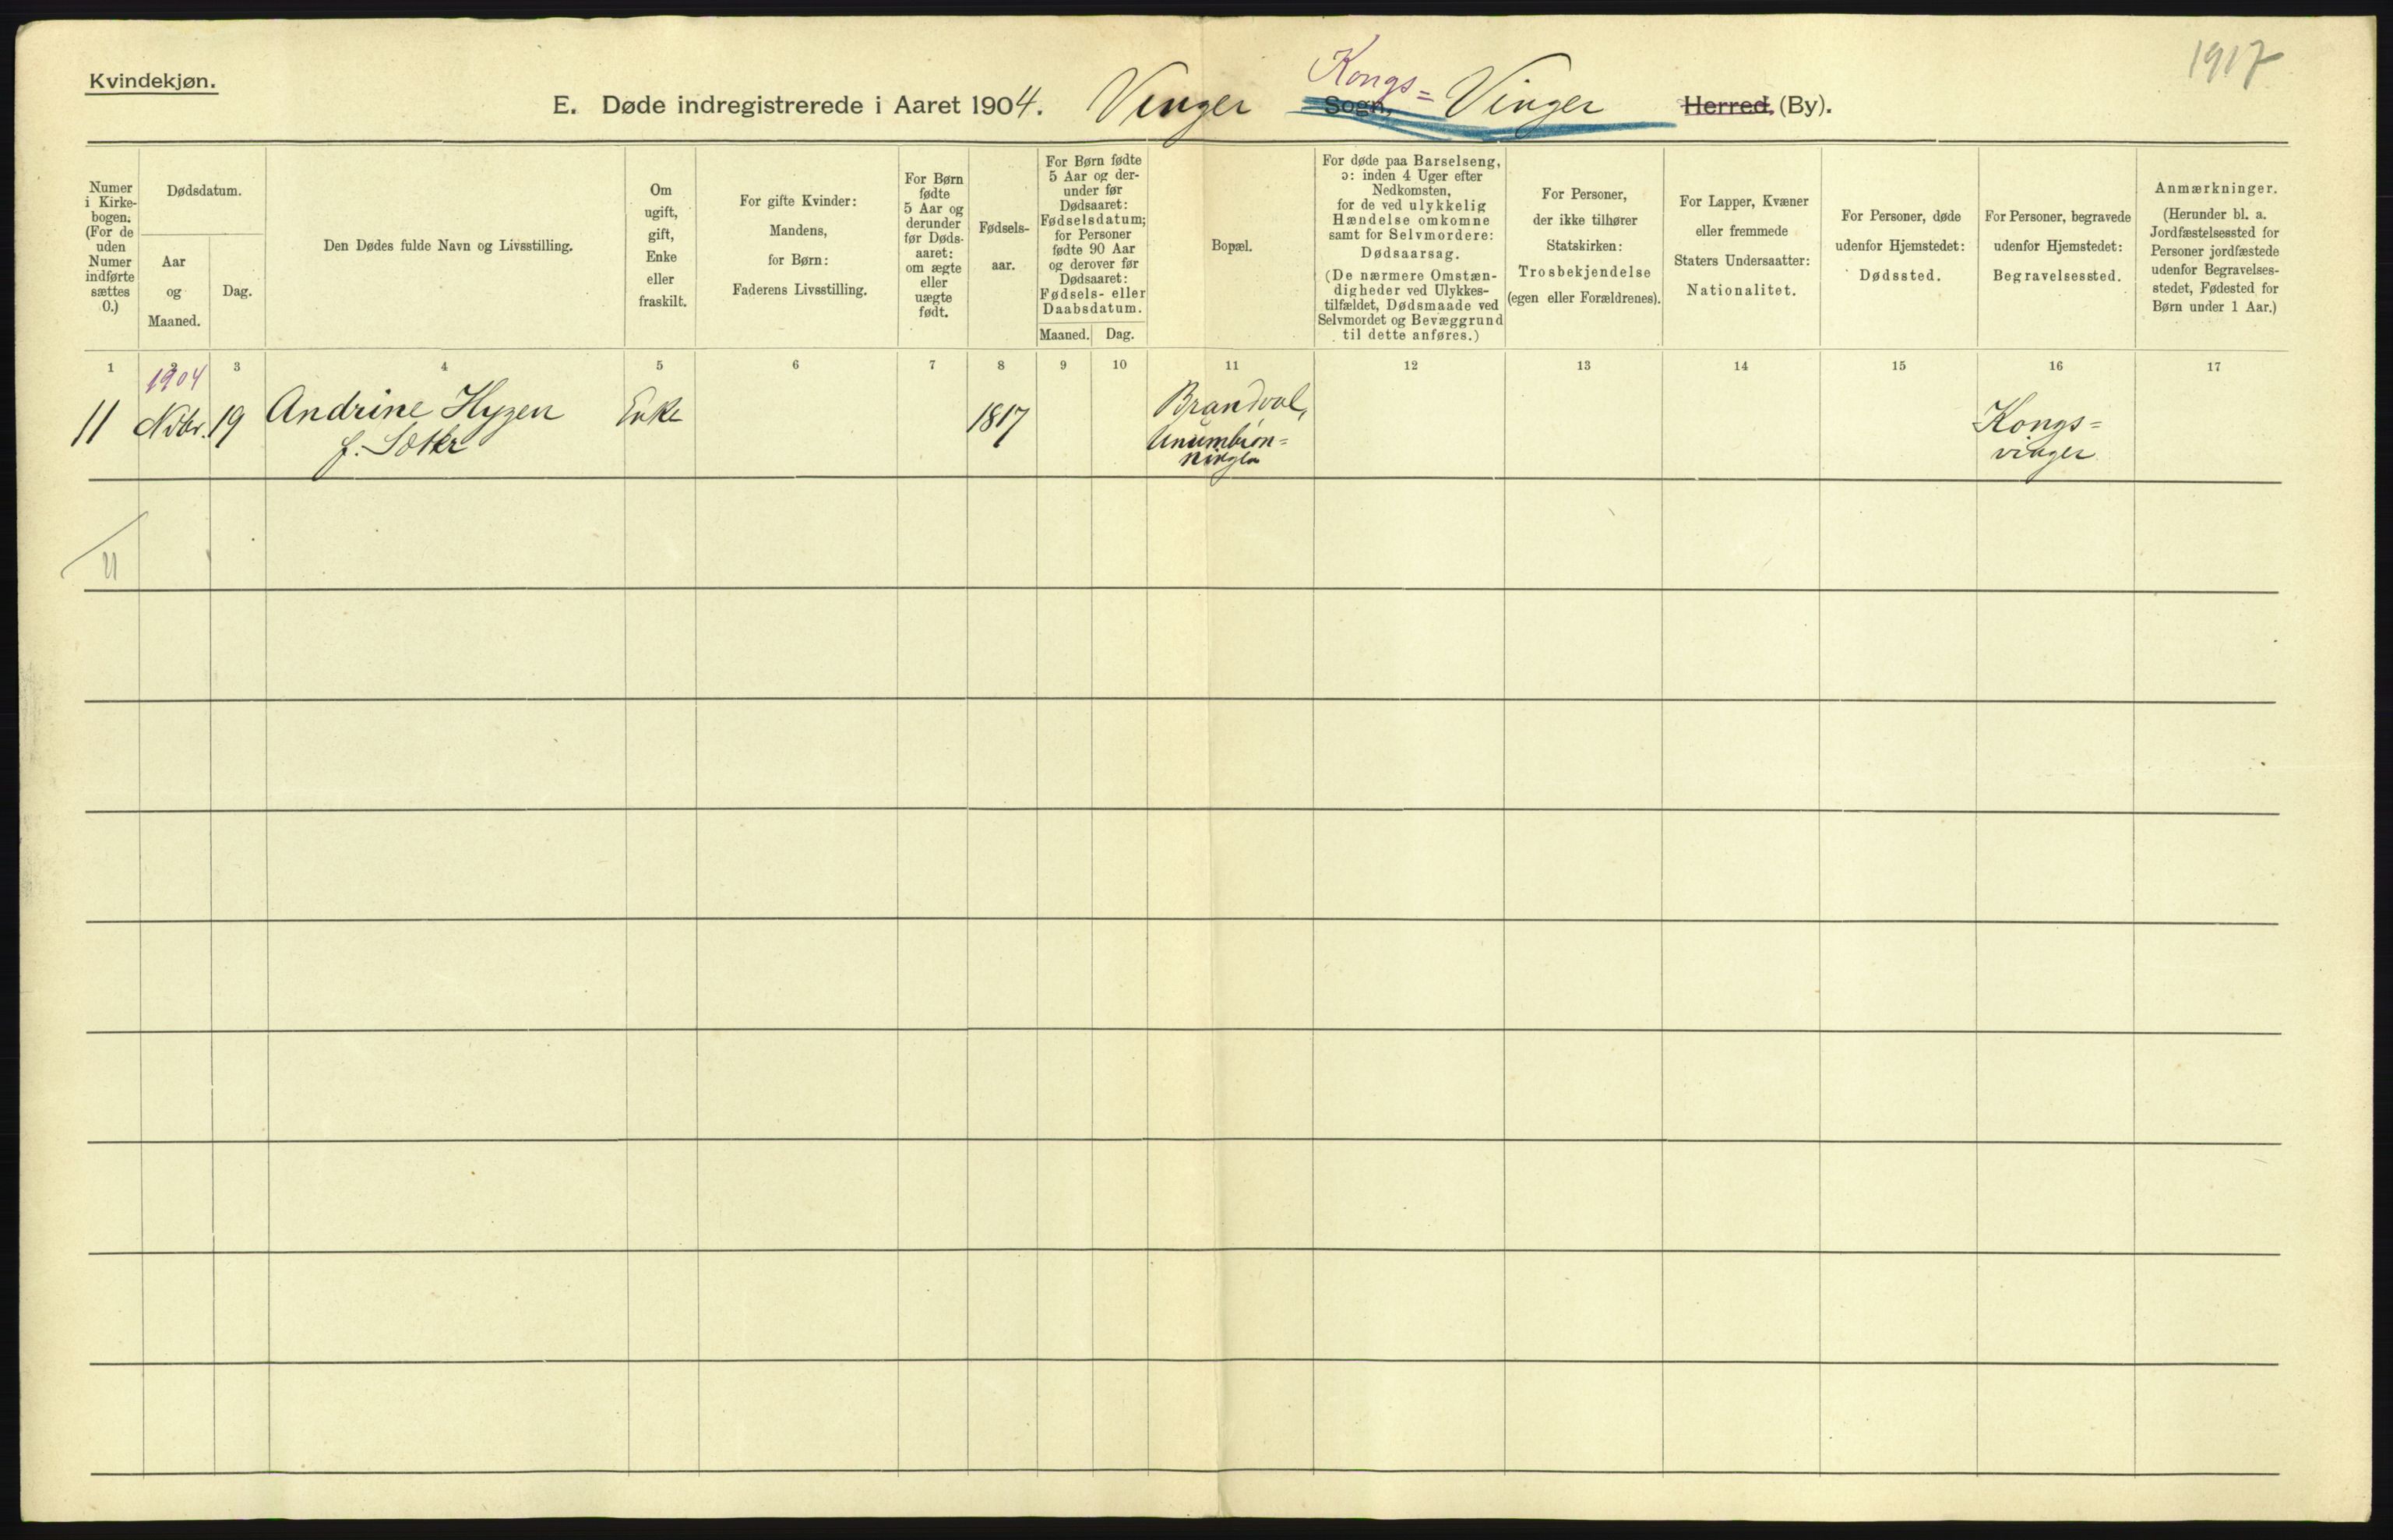 Kvindekjøn.
1917
Kongs=
E. Døde indregistrerede i Aaret 1904. Vinger Sogn, Vinger Herred. (By).
Numer
i Kirke-
bogen.
(For de
uden
Numer
indførte
sættes
0.)
Dødsdatum.
Aar
og
Maaned.
Dag.
Den Dødes fulde Navn og Livsstilling.
Om
ugift,
gift,
Enke
eller
fraskilt.
For gifte Kvinder:
Mandens,
for Børn:
Faderens Livsstilling.
For Børn
fødte
5 Aar og
derunder
før Døds-
aaret:
om ægte
eller
uægte
født.
Fødsels-
aar.
For Børn fødte
5 Aar og der-
under før
Dødsaaret:
Fødselsdatum;
for Personer
fødte 90 Aar
og derover før
Dødsaaret:
Fødsels- eller
Daabsdatum.
Maaned. Dag.
Bopæl.
For døde paa Barselseng,
ɔ: inden 4 Uger efter
Nedkomsten,
for de ved ulykkelig
Hændelse omkomne
samt for Selvmordere:
Dødsaarsag.
(De nærmere Omstæn-
digheder ved Ulykkes-
tilfældet, Dødsmaade ved
Selvmordet og Bevæggrund
til dette anføres.)
For Personer,
der ikke tilhører
Statskirken:
Trosbekjendelse
(egen eller Forældrenes).
For Lapper, Kvæner
eller fremmede
Staters Undersaatter:
Nationalitet.
For Personer, døde
udenfor Hjemstedet:
Dødssted.
For Personer, begravede
udenfor Hjemstedet:
Begravelsessted.
Anmærkninger.
(Herunder bl. a.
Jordfæstelsessted for
Personer jordfæstede
udenfor Begravelses-
stedet, Fødested for
Børn under 1 Aar.)
1 2 3 4 5 6 7 8 9 10 11 12 13 14 15 16 17
1904
11 Nvbr. 19 Andrine Hyzen Enke 1817 Brandval, Kongs=
f. vinger
11